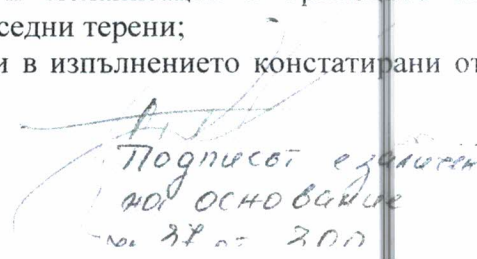 седни терени;
и в изпълнението констатирани от
Подписът е заличен
на основание
чл 37 от ЗОП